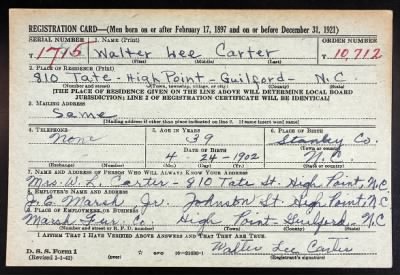 REGISTRATION CARD—(Men born on or after February 17, 1897 and on or before December 31, 1921)
SERIAL NUMBER 1. NAME (Print) ORDER NUMBER
T 1715 Walter Lee Carter T 10,712
(First) (Middle) (Last)
2. PLACE OF RESIDENCE (Print)
810 Tate - High Point - Guilford - N.C
(Number and street) (Town, township, village, or city) (County) (State)
[THE PLACE OF RESIDENCE GIVEN ON THE LINE ABOVE WILL DETERMINE LOCAL BOARD
JURISDICTION; LINE 2 OF REGISTRATION CERTIFICATE WILL BE IDENTICAL]
3. MAILING ADDRESS
Same
[Mailing address if other than place indicated on line 2. If same insert word same]
4. TELEPHONE 5. AGE IN YEARS 6. PLACE OF BIRTH
None 39 Stanley Co.
DATE OF BIRTH (Town or county)
4 24 - 1902 N.C.
(Exchange) (Number) (Mo.) (Day) (Yr.) (State or country)
7. NAME AND ADDRESS OF PERSON WHO WILL ALWAYS KNOW YOUR ADDRESS
Mrs. W. L. Carter - 810 Tate St. High Point, N.C.
8. EMPLOYER'S NAME AND ADDRESS
J. E. Marsh Jr. Johnson St. High Point, N.C
9. PLACE OF EMPLOYMENT OR BUSINESS
Marsh Fur. Co. High Point - Guilford - N.C.
(Number and street or R. F. D. number) (Town) (County) (State)
I AFFIRM THAT I HAVE VERIFIED ABOVE ANSWERS AND THAT THEY ARE TRUE.
D. S. S. Form 1
(Revised 1-1-42) (over) Walter Lee Carter
(Registrant's signature)